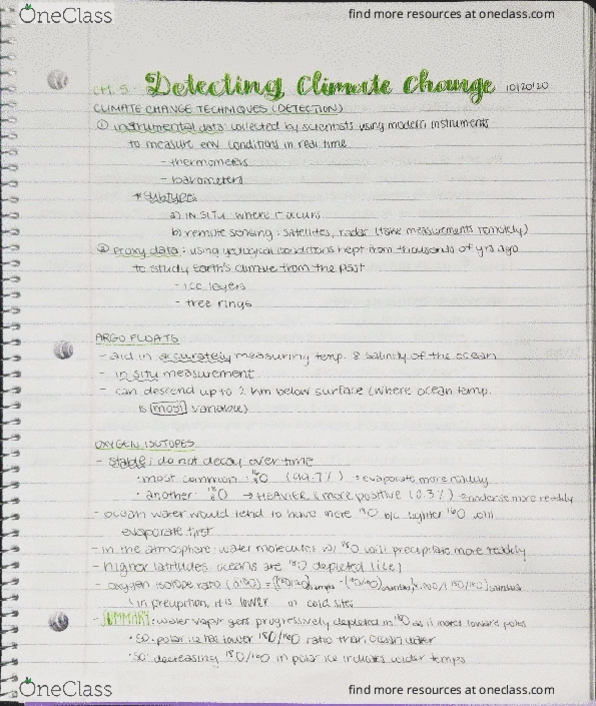 OneClass
find more resources at oneclass.com
CH. 5 Detecting Climate Change 10/20/20
CLIMATE CHANGE TECHNIQUES (DETECTION)
① instrumental data: collected by scientists using modern instruments
to measure env conditions in real time
- thermometers
- barometers
* subtypes
a) IN SITU where it occurs
b) remote sensing: satellites, radar (take measurements remotely)
② Proxy data: using geological conditions kept from thousands of yrs ago
to study Earth's climate from the past
- ice layers
- tree rings
ARGO FLOATS
- aid in accurately measuring temp. & salinity of the ocean
- in situ measurement
- can descend up to 2 km below surface (where ocean temp.
is most variable)
OXYGEN ISOTOPES
- stable; do not decay over time
• most common: ¹⁶O (99.7%) → evaporate more readily
• another: ¹⁸O → HEAVIER & more positive (0.3%) → condense more readily
- ocean water would tend to have more ¹⁸O b/c lighter ¹⁶O will
evaporate first
- in the atmosphere: water molecules w/ ¹⁸O will precipitate more readily
- higher latitudes: oceans are ¹⁸O depleted (ice)
- oxygen isotope ratio
in precipition, it is lower in cold sites
- SUMMARY: water vapor gets progressively depleted in ¹⁸O as it moves toward poles
• SO: polar ice has lower ¹⁸O/¹⁶O ratio than ocean water
• SO: decreasing ¹⁸O/¹⁶O in polar ice indicates colder temps
OneClass
find more resources at oneclass.com